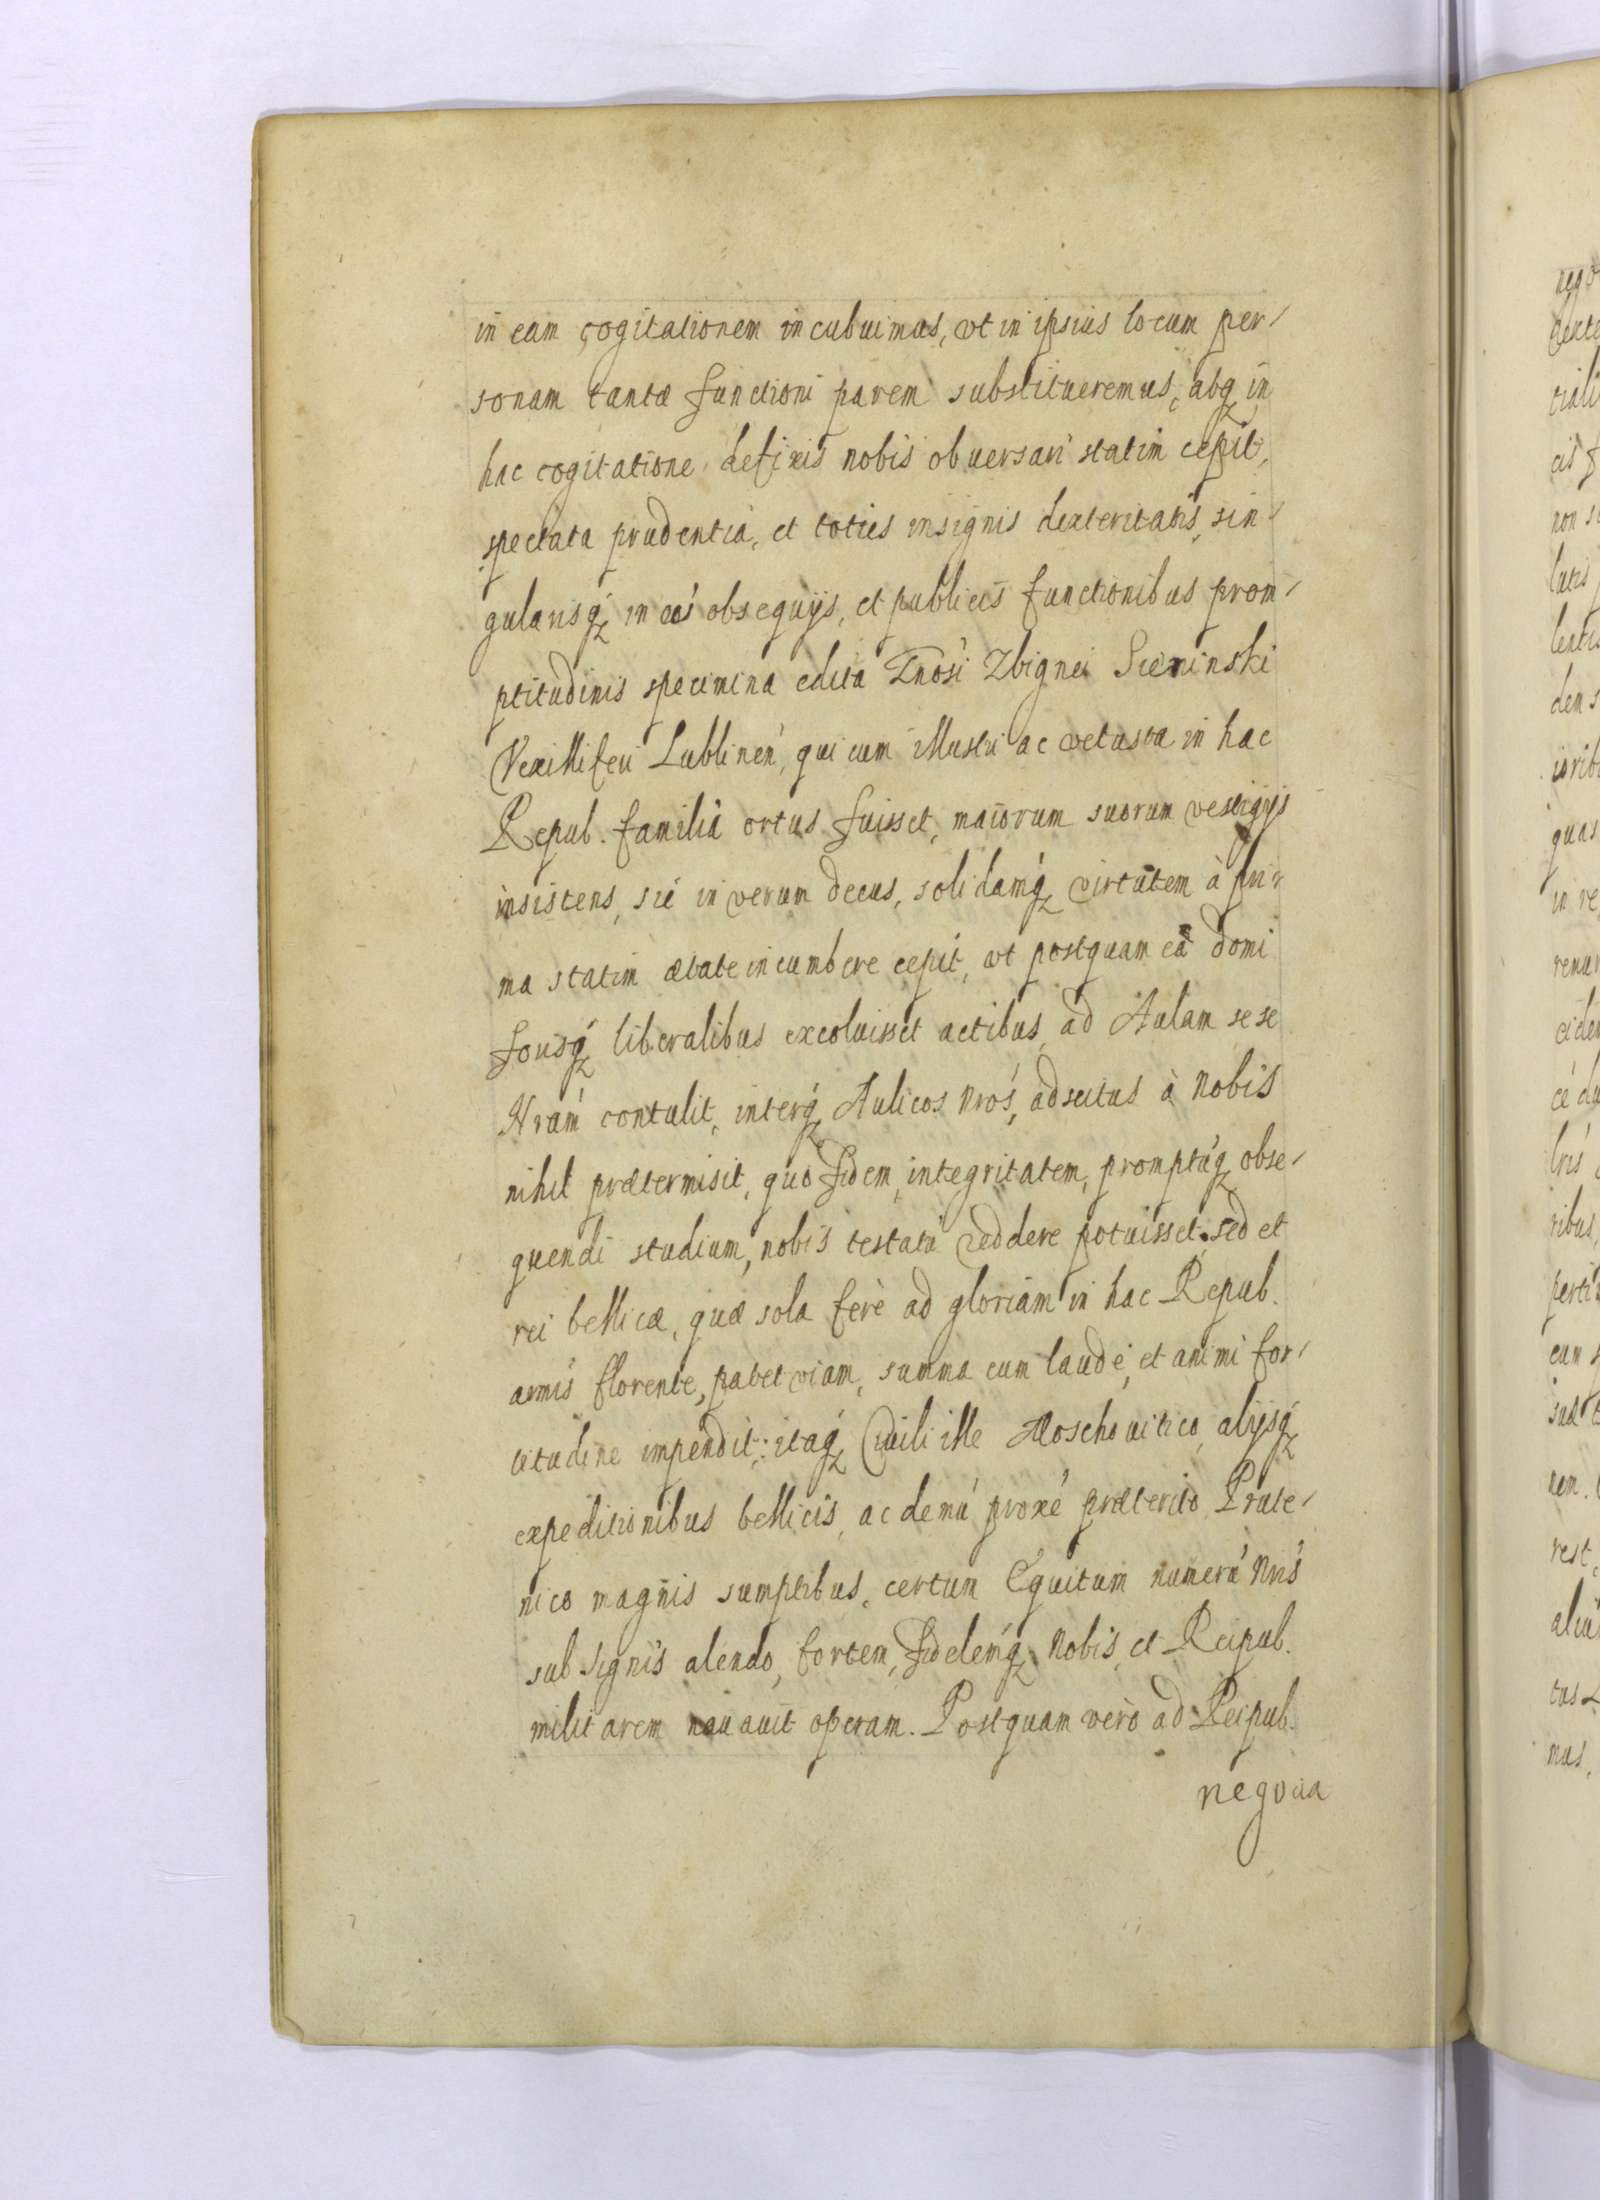 in eam cogitationem incubuimus, vt in ipsius locum per-
sonam tantæ functioni parem substitueremus, atq; in
hac cogitatione defixis nobis obuersari statim cepit,
spectata prudentia, et toties insignis dexteritatis, sin-
gularisq; in obsequijs, et publicis functionibus prom-
ptitudinis specimina edita Gnosi Zbignei Sieninski
Vexilliferi Lublinen, qui cum illustri ac vetusta in hac
Repub. familia ortus fuisset, maiorum suorum vestigijs
insistens, sic in verum decus, solidamq; virtutem à pri-
ma statim ætate incumbere cepit, vt postquam eã domi
forisq; liberalibus excoluisset actibus, ad Aulam sese
Nram contulit, interq; Aulicos nros, adscitus à nobis
nihil prætermisit, quo fidem, integritatem, promptuq; obse-
quendi studium, nobis testatu reddere potuisset. sed et
rei bellicæ, quæ sola ferè ad gloriam in hac Repub.
armis florente, patet viam, summa cum laude, et animi for-
titudine impendit; itaq; Civili ille Moschouitico, alijsq;
expeditionibus bellicis, ac demu proxe præterito Prute-
nico magnis sumptibus, certum Equitum numeru nris
sub signis alendo, fortem, fidelemq; Nobis, et Reipub.
militarem nauauit operam. Postquam verò ad Reipub.
negotia